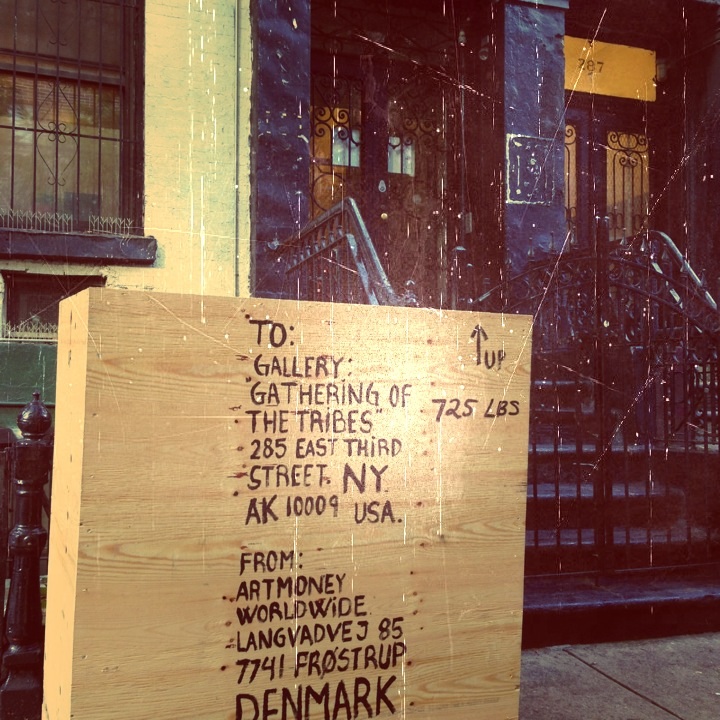 287
TO:
GALLERY:
"GATHERING OF
THE TRIBES"
285 EAST THIRD
STREET. NY.
AK 10009 USA.
↑UP
725 LBS
FROM:
ARTMONEY
WORLDWIDE
LANGVADVEJ 85
7741 FRØSTRUP
DENMARK